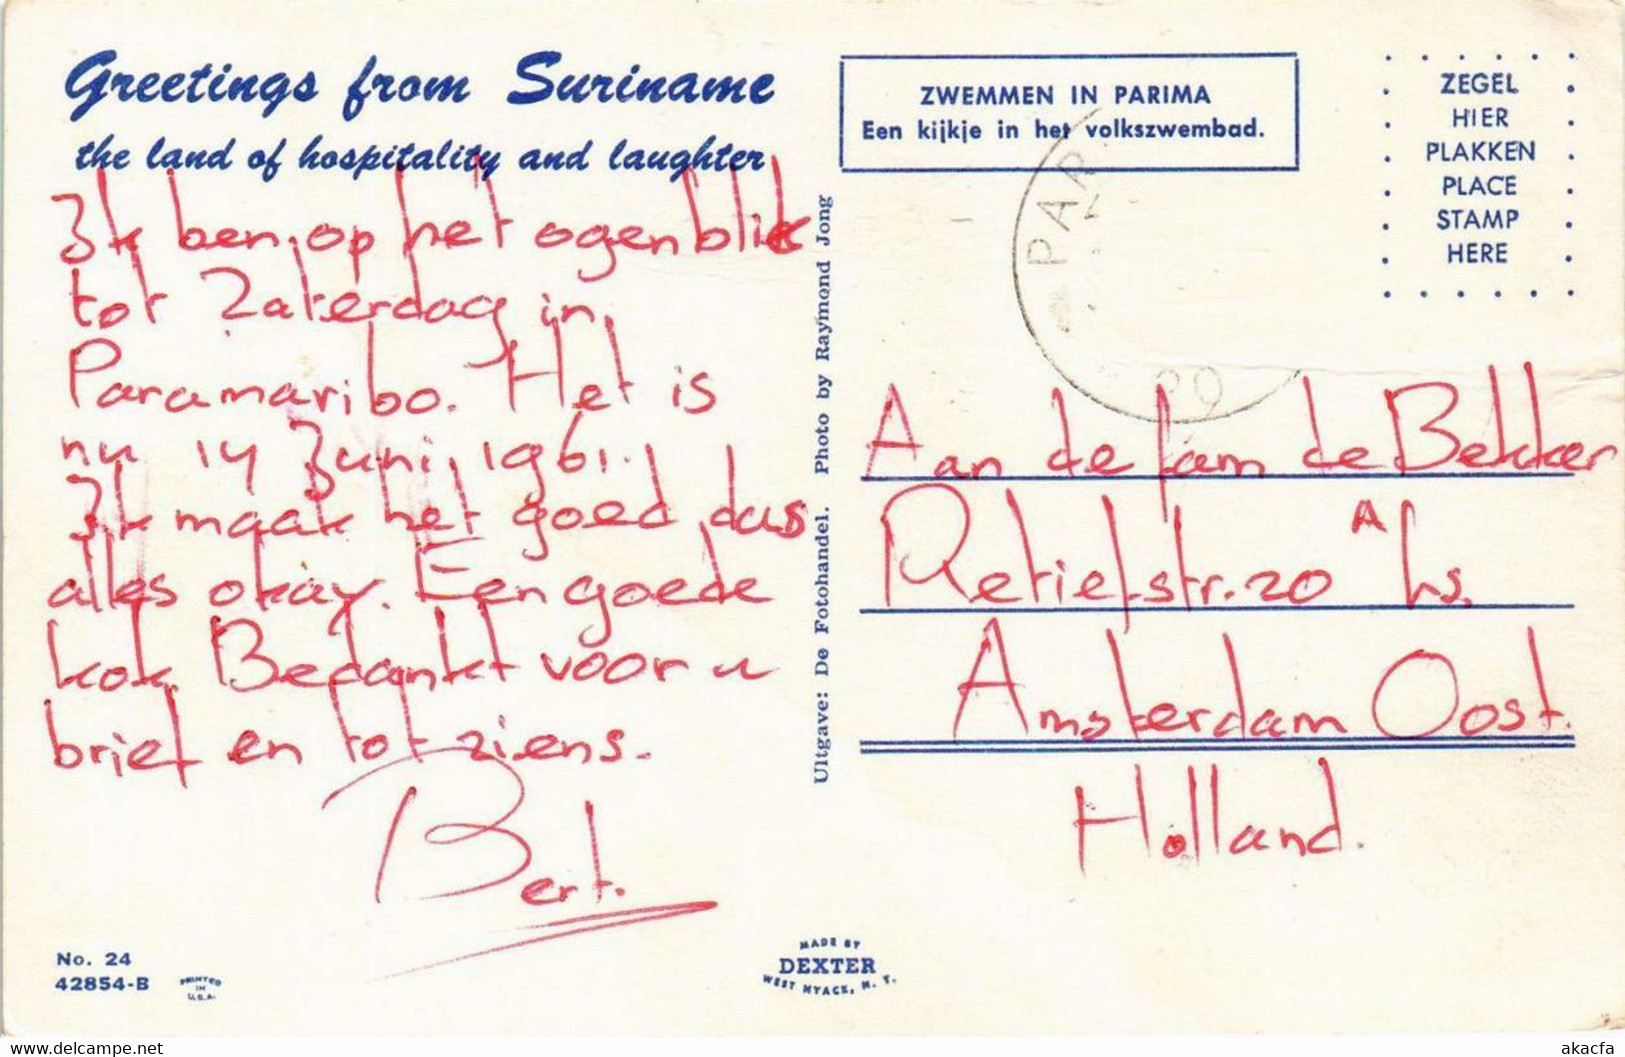 Greetings from Suriname
the land of hospitality and laughter
Ik ben op het ogenblik
tot Zaterdag in
Paramaribo. Het is
nu 14 Juni 1961.
Ik maak het goed dus
alles okay. Een goede
kok. Bedankt voor u
brief en tot ziens.
Bert.
No. 24
42854-B
PRINTED
IN
U.S.A.
MADE BY
DEXTER
WEST NYACK, N. Y.
Uitgave: De Fotohandel. Photo by Raymond Jong
ZWEMMEN IN PARIMA
Een kijkje in het volkszwembad.
ZEGEL
HIER
PLAKKEN
PLACE
STAMP
HERE
PAR
Aan de fam de Bekker
Retiefstr. 20 A hs.
Amsterdam Oost.
Holland.
https://www.delcampe.net
akacfa